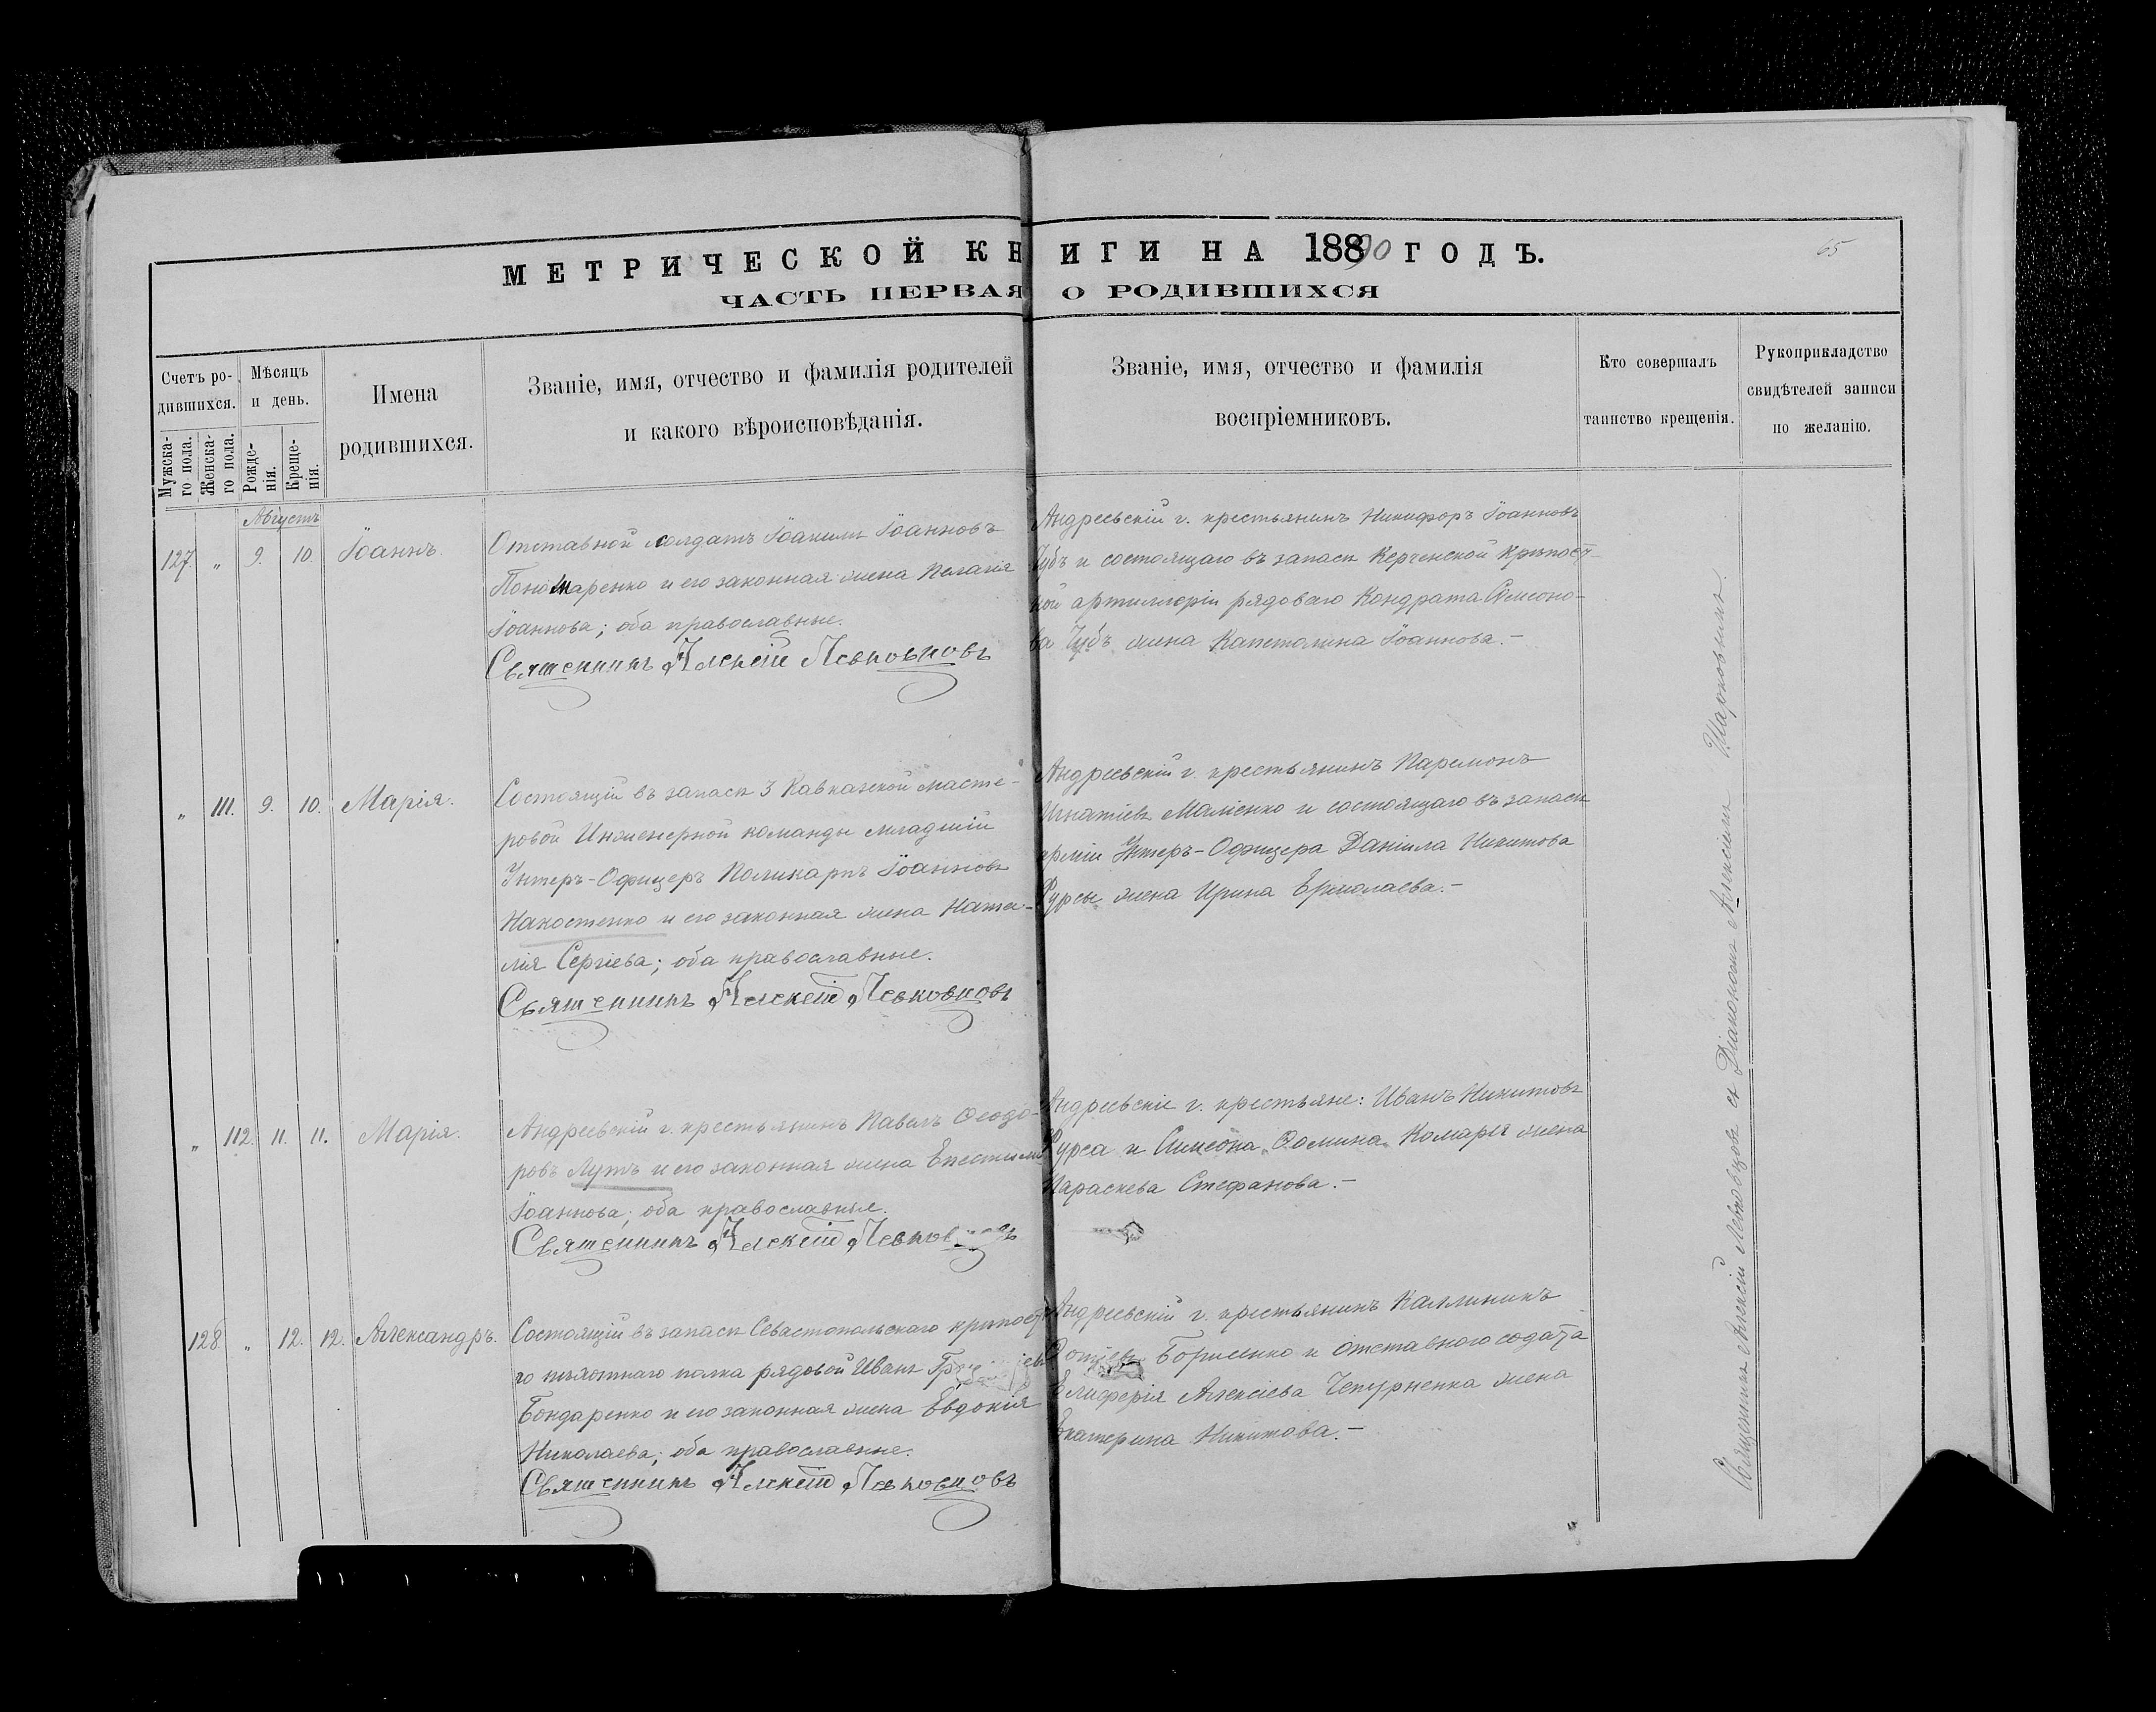 МЕТРИЧЕСКОЙ КНИГИ НА 1890 ГОДЪ.
65
ЧАСТЬ ПЕРВАЯ О РОДИВШИХСЯ
Счетъ родившихся.
Мужскаго пола.
Женскаго пола.
Мѣсяцъ и день.
Рожденія.
Крещенія.
Имена родившихся.
Званіе, имя, отчество и фамилія родителей
и какого вѣроисповѣданія.
Званіе, имя, отчество и фамилія
воспріемниковъ.
Кто совершалъ
таинство крещенія.
Рукоприкладство
свидѣтелей записи
по желанію.
Августъ
127. „ 9. 10. Іоаннъ.
Отставной солдатъ Іоакимъ Іоанновъ
Пономаренко и его законная жена Пелагія
Іоаннова; оба православные.
Священникъ Алексій Левковцовъ
Андреевскій г. крестьянинъ Никифоръ Іоанновъ
Чубъ и состоящаго въ запасѣ Керченской крѣпост-
ной артиллеріи рядоваго Кондрата Симеоно-
ва Чубъ жена Капетолина Іоаннова.-
„ 111. 9. 10. Марія.
Состоящій въ запасѣ 3 Кавказской масте-
ровой Инженерной команды младшій
Унтеръ-Офицеръ Поликарпъ Іоанновъ
Накостенко и его законная жена Ната-
лія Сергіева; оба православные.
Священникъ Алексій Левковцовъ
Андреевскій г. крестьянинъ Парамонъ
Игнатіевъ Маліенко и состоящаго въ запасѣ
арміи Унтеръ-Офицера Даніила Никитова
Фурсы жена Ирина Ермолаева.-
„ 112. 11. 11. Марія.
Андреевскій г. крестьянинъ Павелъ Ѳеодо-
ровъ Лутъ и его законная жена Епистимія
Іоаннова; оба православные.
Священникъ Алексій Левковцовъ
Андреевскіе г. крестьяне: Иванъ Никитовъ
Фурса и Симеона Ѳомина Комаря жена
Параскева Стефанова.-
128 „ 12. 12. Александръ.
Состоящій въ запасѣ Севастопольскаго крѣпост-
го пѣхотнаго полка рядовой Иванъ
Бондаренко и его законная жена Евдокія
Николаева; оба православные.
Священникъ Алексій Левковцовъ
Андреевскій г. крестьянинъ Каллиникъ
Борисенко и отставного содата
Елиферія Алексіева Чепурненка жена
Екатерина Никитова.-
Священникъ Алексій Левковцовъ съ Діакономъ Алексіемъ Шарковымъ.